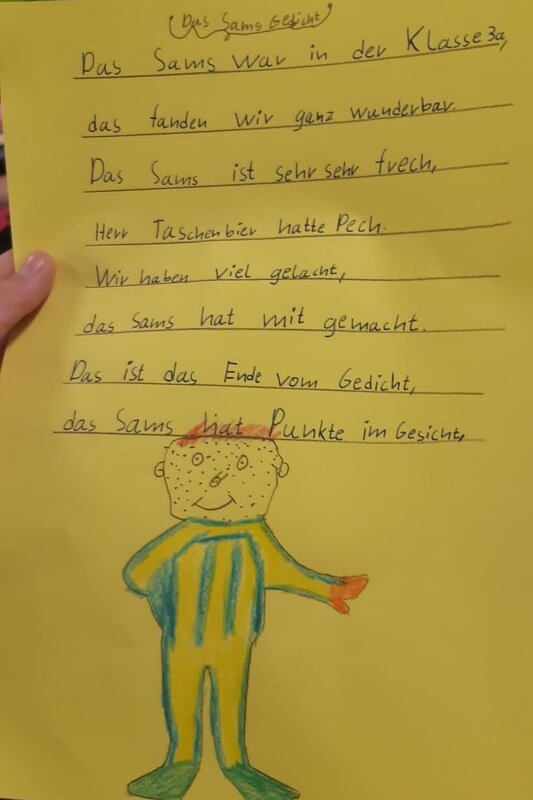 Das Sams Gedicht
Das Sams war in der Klasse 3a,
das fanden wir ganz wunderbar.
Das Sams ist sehr sehr frech,
Herr Taschenbier hatte Pech.
Wir haben viel gelacht,
das Sams hat mit gemacht.
Das ist das Ende vom Gedicht,
das Sams hat Punkte im Gesicht,